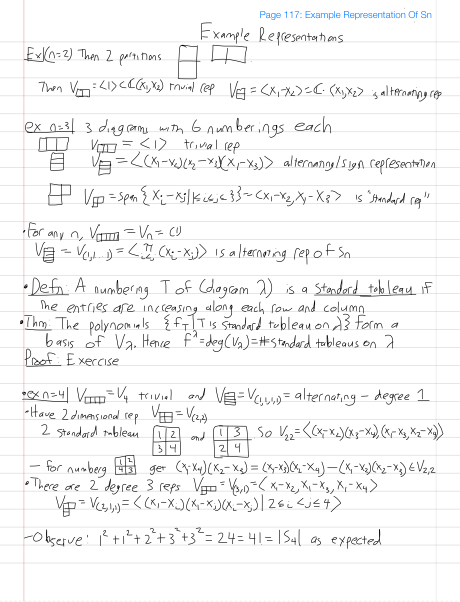 Page 117: Example Representation Of Sn
Example Representations
Ex|(n=2) Then 2 partitions
Then V = <1> ⊂ ℂ(x₁,x₂) trivial rep V = <x₁-x₂> = ℂ·(x₁,x₂) is alternating rep
ex n=3| 3 diagrams with 6 numberings each
V = <1> trivial rep
V = <(x₁-x₂)(x₂-x₃)(x₁-x₃)> alternating/sign representation
V = span{xᵢ-xⱼ|1≤i<j≤3} = <x₁-x₂, x₁-x₃> is "standard rep"
• For any n, V = Vₙ = (1)
V = V(1,1,...1) = <π i<j (xᵢ-xⱼ)> is alternating rep of Sn
• Defn: A numbering T of (diagram λ) is a standard tableau if
the entries are increasing along each row and column
• Thm: The polynomials {f_T | T is standard tableau on λ} form a
basis of V_λ. Hence f^λ = deg(V_λ) = # standard tableaus on λ
Proof: Exercise
• ex n=4| V = V₄ trivial and V = V(1,1,1,1) = alternating - degree 1
- Have 2 dimensional rep V = V(2,2)
2 standard tableau 1 2 3 4 and 1 3 2 4 So V₂₂ = <(x₁-x₃)(x₂-x₄), (x₁-x₂)(x₃-x₄)>
- for numberg 1 2 4 3 get (x₁-x₄)(x₂-x₃) = (x₁-x₃)(x₂-x₄) - (x₁-x₂)(x₃-x₄) ∈ V₂,₂
• There are 2 degree 3 reps V = V(3,1) = <x₁-x₂, x₁-x₃, x₁-x₄>
V = V(2,1,1) = <(x₁-xᵢ)(x₁-xⱼ)(xᵢ-xⱼ) | 2≤i<j≤4>
- Observe: 1²+1²+2²+3²+3² = 24 = 4! = |S₄| as expected